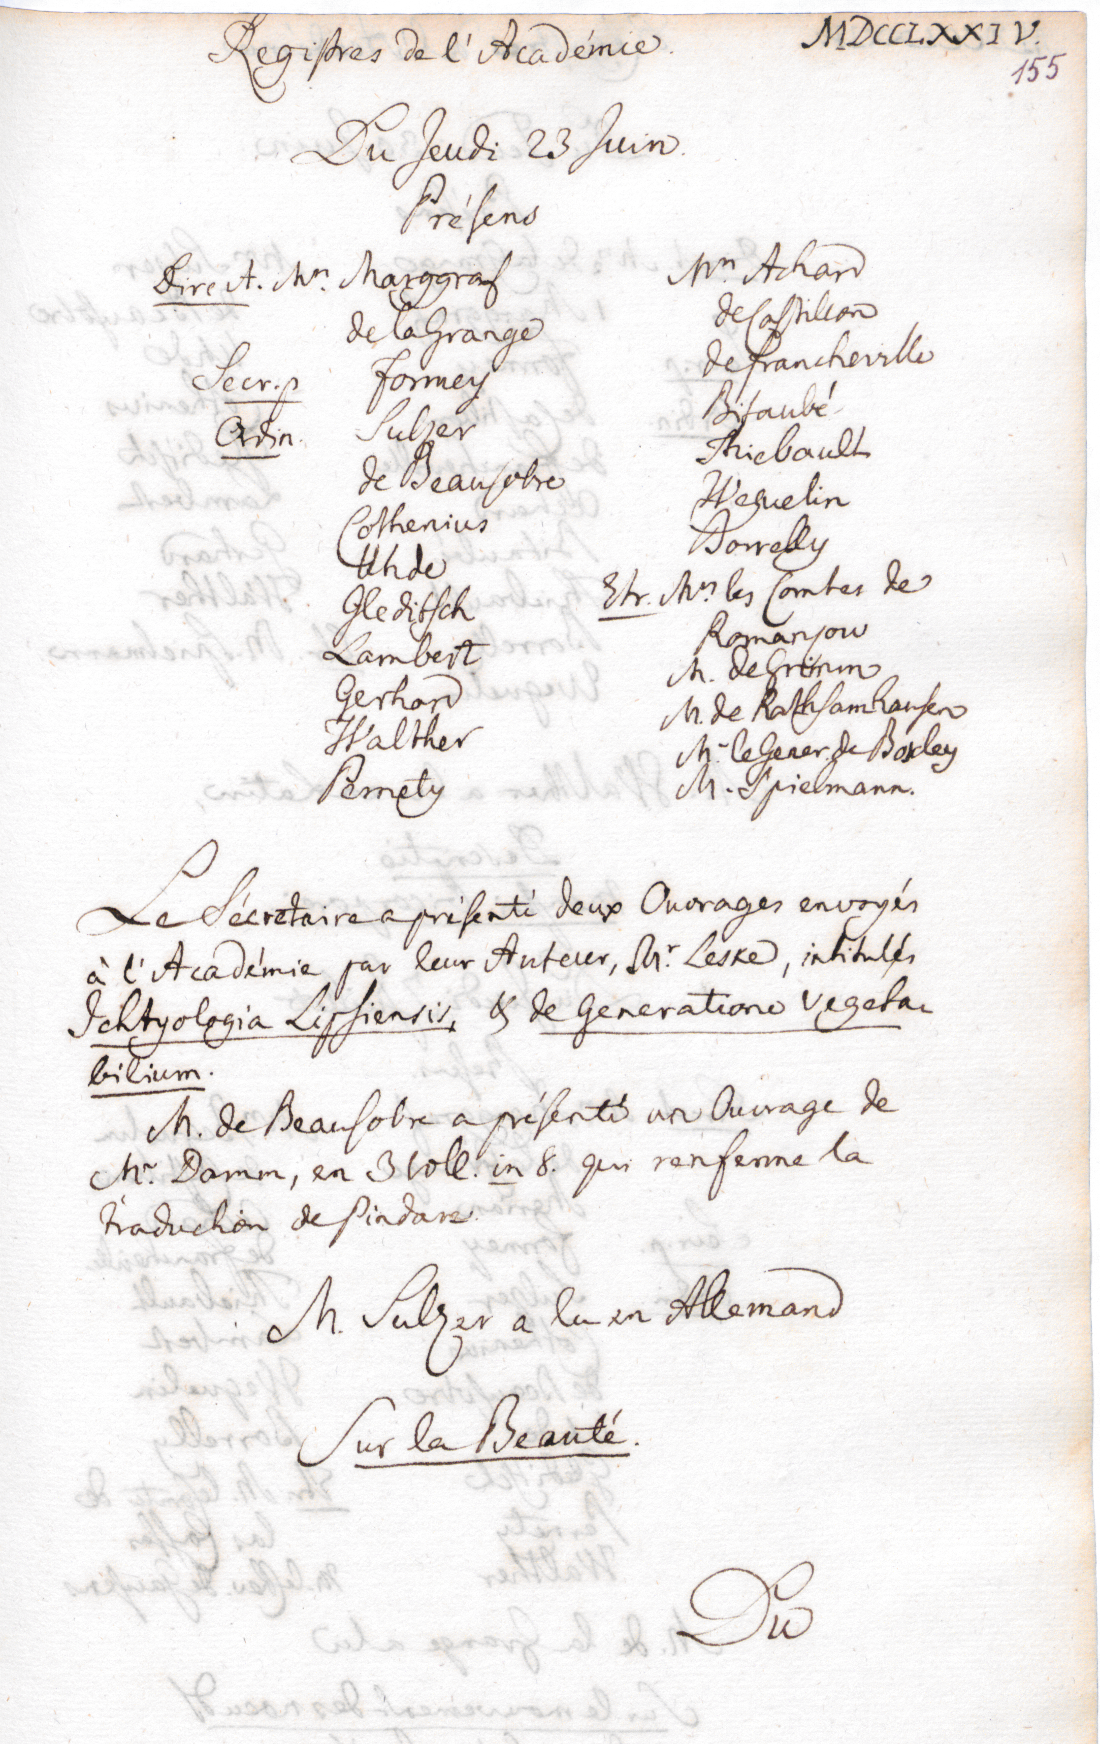 Registres de l'Académie.
MDCCLXXIV.
155
Du Jeudi 23 Juin.
Présens
Direct. Mrs. Marggraf
de la Grange
Secr. p. Formey
Ordin. Sulzer
de Beausobre
Cothenius
Uhde
Gleditsch
Lambert
Gerhard
Walther
Pernety
Mrs Achard
de Castillon
de Francheville
Bitaubé
Thiebault
Weguelin
Borrelly
Etr. Mrs les Comtes de
Romanzow
M. de Grimm
M. de Rathsamhausen
Mr le Gener. de
M. Spielmann.
Le Sécretaire a présenté deux Ouvrages envoyés
à l'Académie par leur Auteur, Mr. Leske, intitulés
Ichtyologia Lipsiensis, & de Generatione Vegeta-
bilium.
M. de Beausobre a présenté un Ouvrage de
Mr. Damm, en 3 voll. in 8. qui renferme la
traduction de Pindare.
M. Sulzer a lu en Allemand
Sur la Beauté.
Du